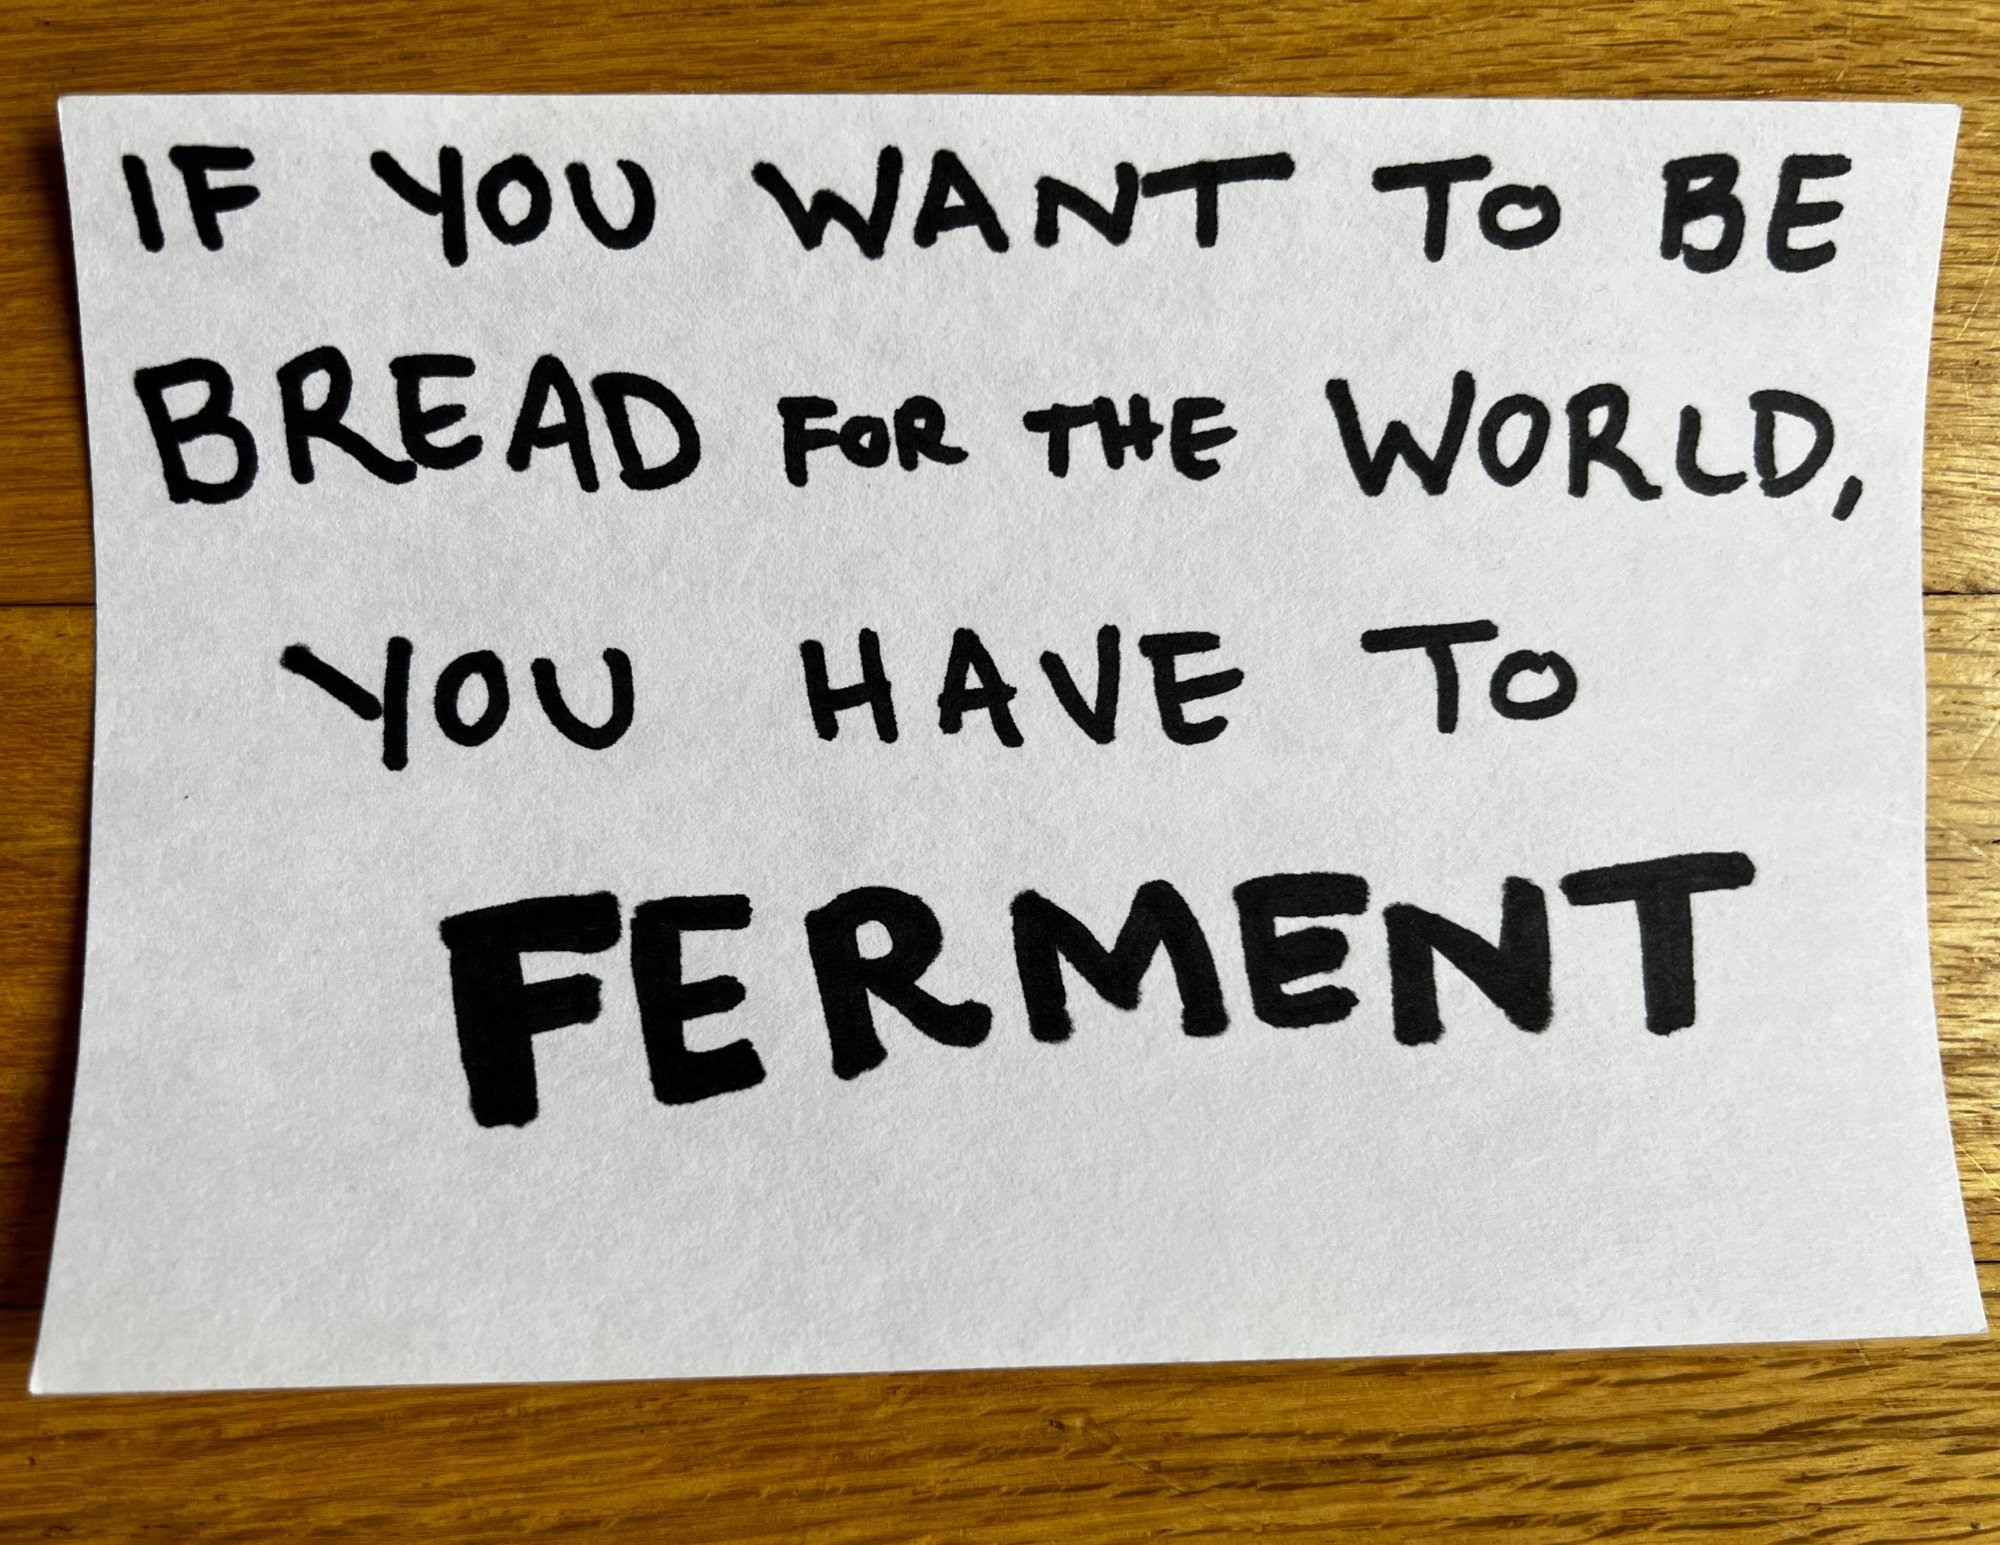 IF YOU WANT TO BE
BREAD FOR THE WORLD,
YOU HAVE TO
FERMENT